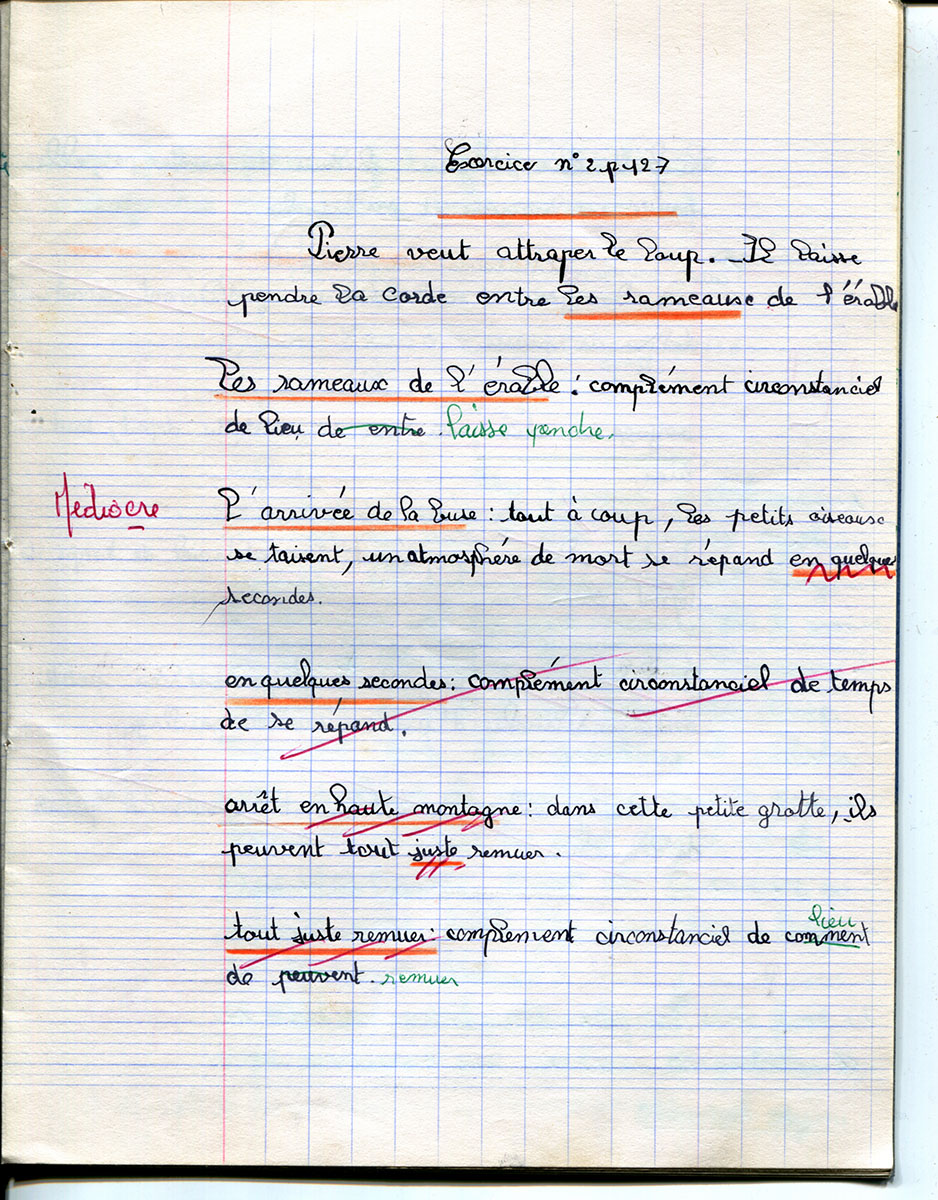 Exercice n° 2 p 127
Pierre veut attraper le loup. Il laisse
pendre la corde entre les rameause de l'érable
Les rameaux de l'érable : complément circonstanciel
de lieu de entre. laisse pendre.
Médiocre
L'arrivée de la buse : tout à coup, les petits oiseause
se taisent, un atmosphère de mort se répand en quelques
secondes.
en quelques secondes : complément circonstanciel de temps
de se répand.
arrêt en haute montagne : dans cette petite grotte, ils
peuvent tout juste remuer.
lieu
tout juste remuer : complement circonstanciel de comment
de peuvent. remuer